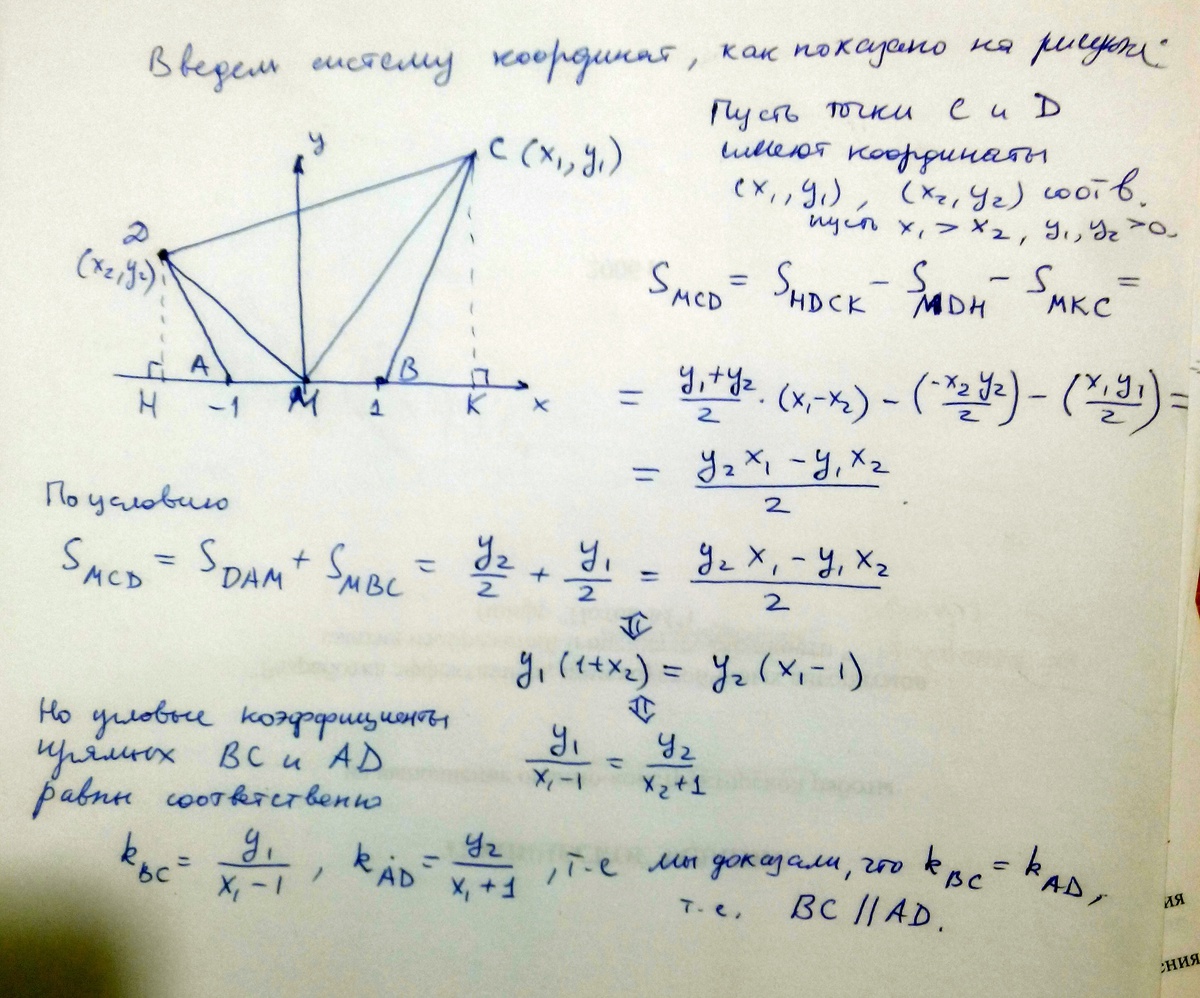 Введем систему координат, как показано на рисунке:
Пусть точки C и D
имеют координаты
(x₁, y₁), (x₂, y₂) соотв.
пусть x₁ > x₂, y₁, y₂ > 0.
y
C (x₁, y₁)
D
(x₂, y₂)
A
B
H -1 M 1 K x
S_MCD = S_HDCK - S_MDH - S_MKC =
= (y₁+y₂)/2 · (x₁-x₂) - (-x₂y₂/2) - (x₁y₁/2) =
= (y₂x₁ - y₁x₂)/2
По условию
S_MCD = S_DAM + S_MBC = y₂/2 + y₁/2 = (y₂x₁ - y₁x₂)/2
⇕
y₁(1+x₂) = y₂(x₁-1)
⇕
y₁/(x₁-1) = y₂/(x₂+1)
Но угловые коэффициенты
прямых BC и AD
равны соответственно
k_BC = y₁/(x₁-1), k_AD = y₂/(x₁+1), т.е мы доказали, что k_BC = k_AD,
т.е. BC // AD.
ия
ения